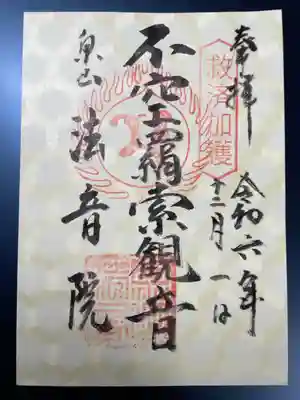 奉拝
救済加護
令和六年
十二月一日
不空羂索観音
泉山
法音院